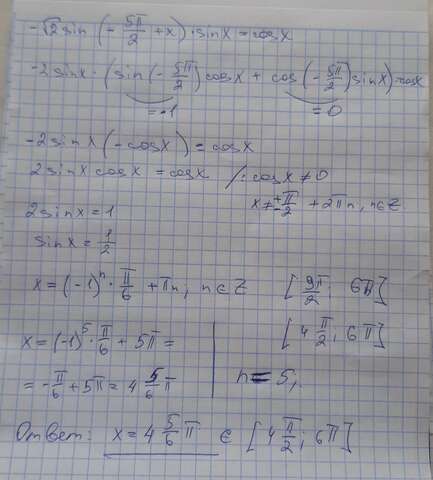 -√2 sin (-5π/2 + x) · sin x = cos x
-2 sin x · (sin (-5π/2) cos x + cos (-5π/2) sin x) = cos x
= -1 = 0
-2 sin x (-cos x) = cos x
2 sin x cos x = cos x /: cos x ≠ 0
2 sin x = 1 x ≠ ±π/2 + 2πn, n ∈ Z
sin x = 1/2
x = (-1)^n · π/6 + πn; n ∈ Z [9π/2; 6π]
x = (-1)^5 · π/6 + 5π = [4 π/2; 6π]
= -π/6 + 5π = 4 5/6 π n = 5,
Ответ: x = 4 5/6 π ∈ [4 π/2; 6π]